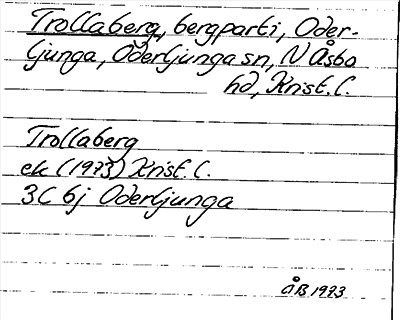 Trollaberg, bergparti, Oder-
ljunga, Oderljunga sn, N Åsbo
hd, Krist. l.
Trollaberg
ek (1973) Krist. l.
3C 6j Oderljunga
ÅB 1973